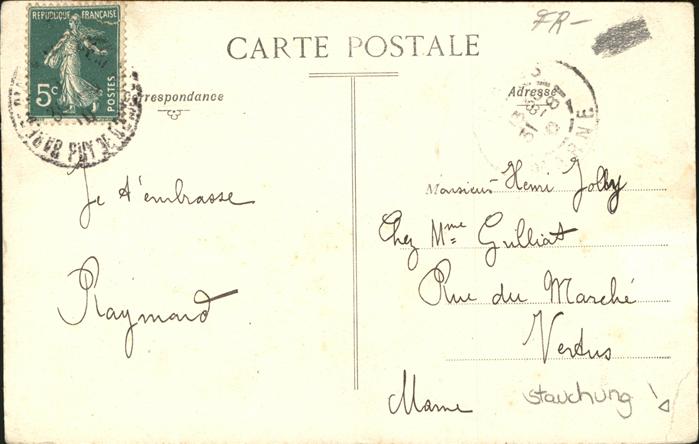 FR-
REPUBLIQUE FRANÇAISE
5c POSTES
CARTE POSTALE
Correspondance
Adresse
PUY-DE-DOME
Je t'embrasse
Raymond
Monsieur Henri Jolly
Chez Mme Gulliat
Rue du Marché
Vertus
Marne
stauchung!